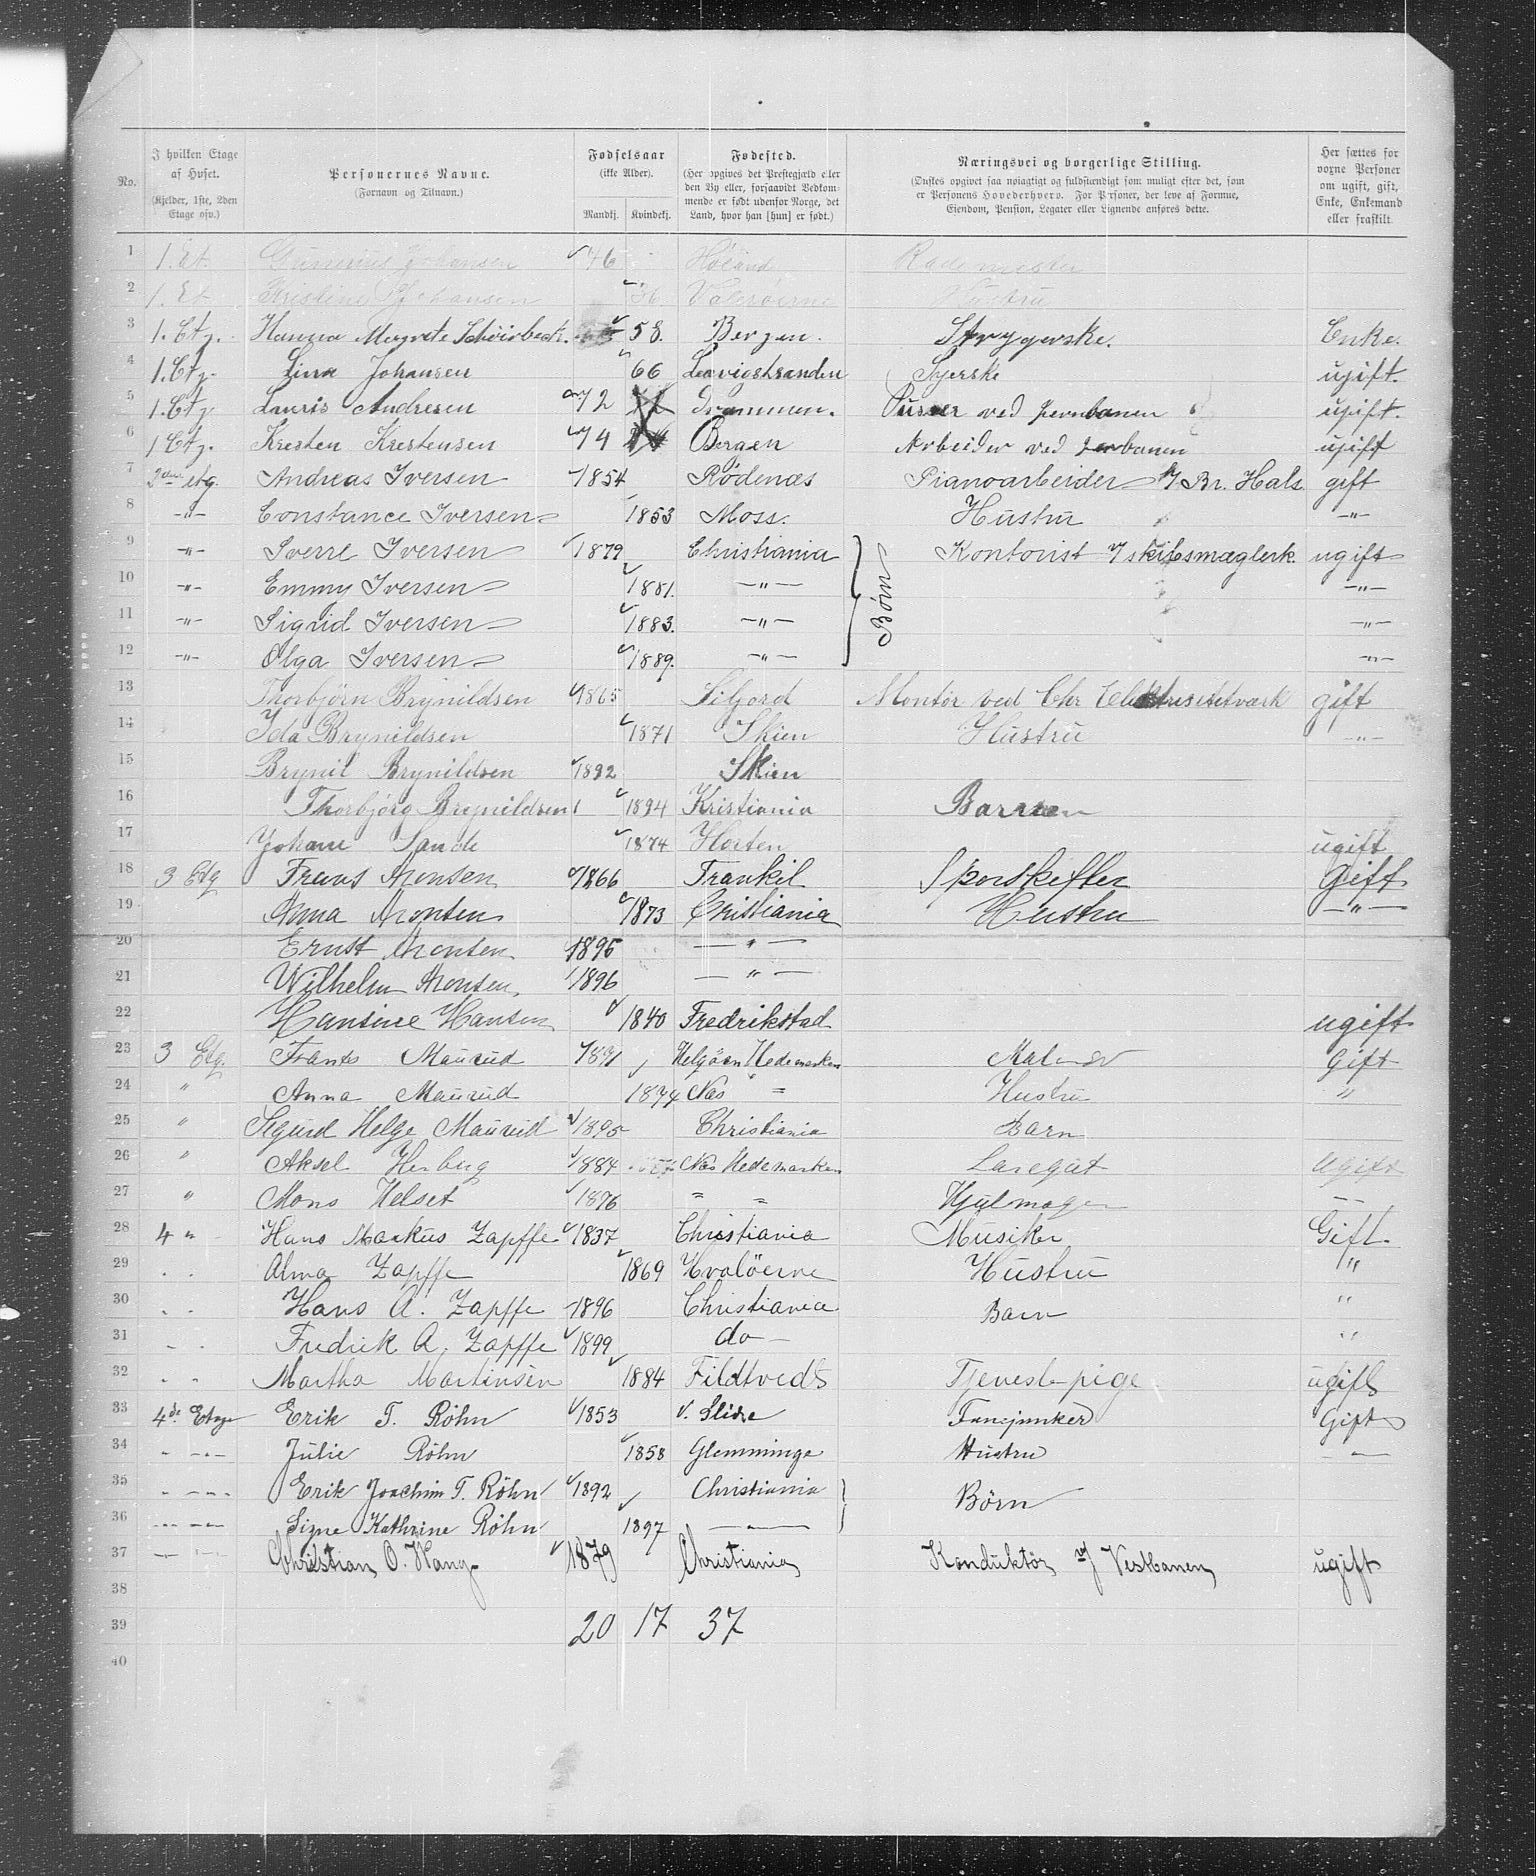 No. | I hvilken Etage af Huset. (Kjelder, 1ste, 2den Etage osv.) | Personernes Navne. (Fornavn og Tilnavn.) | Fødselsaar (ikke Alder). Mandkj. Kvindekj. | Fødested. (Her opgives det Prestegjæld eller den By eller, forsaavidt Vedkommende er født udenfor Norge, det Land, hvor han [hun] er født.) | Næringsvei og borgerlige Stilling. (Ønskes opgivet saa nøiagtigt og fuldstændigt som muligt efter det, som er Personens Hovederhverv. For Personer, der leve af Formue, Eiendom, Pension, Legater eller Lignende anføres dette.) | Her sættes for voxne Personer om ugift, gift, Enke, Enkemand eller fraskilt.
1 1. Et. Gunerius Johansen 46 Høland Rodemester
2 1. Et Kristine Johansen 36 Valerøerne Hustru
3 1. Etg. Hanna Magrete Schøirbeck. 58. Bergen. Strygerske. Enke.
4 1. Etg. Lina Johansen 66 Larvigstranden Syerske ugift.
5 1. Etg Lauris Andresen 72 Drammen. Pusser ved jernbanen ugift.
6 1 Etg. Kresten Krestensen 74 Bergen Arbeider ved jerbanen ugift
7 2den etg. Andreas Iversen 1854 Rødenæs Pianoarbeider h/ Br. Hals gift
8 -"- Constance Iversen 1853 Moss. Hustru -"-
9 -"- Sverre Iversen 1879 Christiania Kontorist v/ skibsmæglerk. ugift
10 -"- Emmy Iversen 1881. -"- Børn -"-
11 -"- Sigrid Iversen 1883. -"- -"-
12 -"- Olga Iversen 1889. -"- -"-
13 Thorbjörn Brynildsen 1865 Siljord Montør ved Chr Elektrisitetværk gift
14 Ida Brynildsen 1871 Skien Hustru -"-
15 Brynil Brynildsen 1892 Skien
16 Thorbjörg Brynildsen 1894 Kristiania Barnen
17 Johane Sande 1874 Horten ugift
18 3 Etg Frans Monsen 1866 Frankil Sporskifter Gift
19 Anna Monsen 1873 Christiania Hustru -"-
20 Ernst Monsen 1895 -"-
21 Wilhelm Monsen, 1896 -"-
22 Hansine Hansen 1840 Fredrikstad ugift
23 3 Etg. Frants Maurud 1891 Helgöen Hedemarken Maler Gift
24 " Anna Maurud 1874 Næs " = Hustru "
25 " Sigurd Helge Maurud 1895 Christiania Barn
26 " Aksel Herberg 1884 Næs Hedemarken Læregut Ugift
27 " Mons Helset 1876 = = Hjulmager
28 4 " Hans Markus Zapffe 1837 Christiania Musiker Gift.
29 . . Alma Zapffe 1869 Hvalöerne Hustru "
30 . . Hans A. Zapffe 1896 Christiania Barn "
31 . . Fredrik A. Zapffe 1899 do "
32 . . Martha Martinsen 1884 Fildtvedt Tjenestepige ugift
33 4de Etage Erik T. Röhn 1853 V. Slidre Fanejunker Gift
34 - -- Julie Röhn 1858 Glemminge Hustru -
35 - --- Erik Joachim T. Röhn 1892 Christiania Börn
36 --- --- Signe Kathrine Röhn 1897 -"-
37 - --- Christian O. Wang 1879 Christiania Konduktör v/ Vestbanen ugift
38
39 20 17 37
40